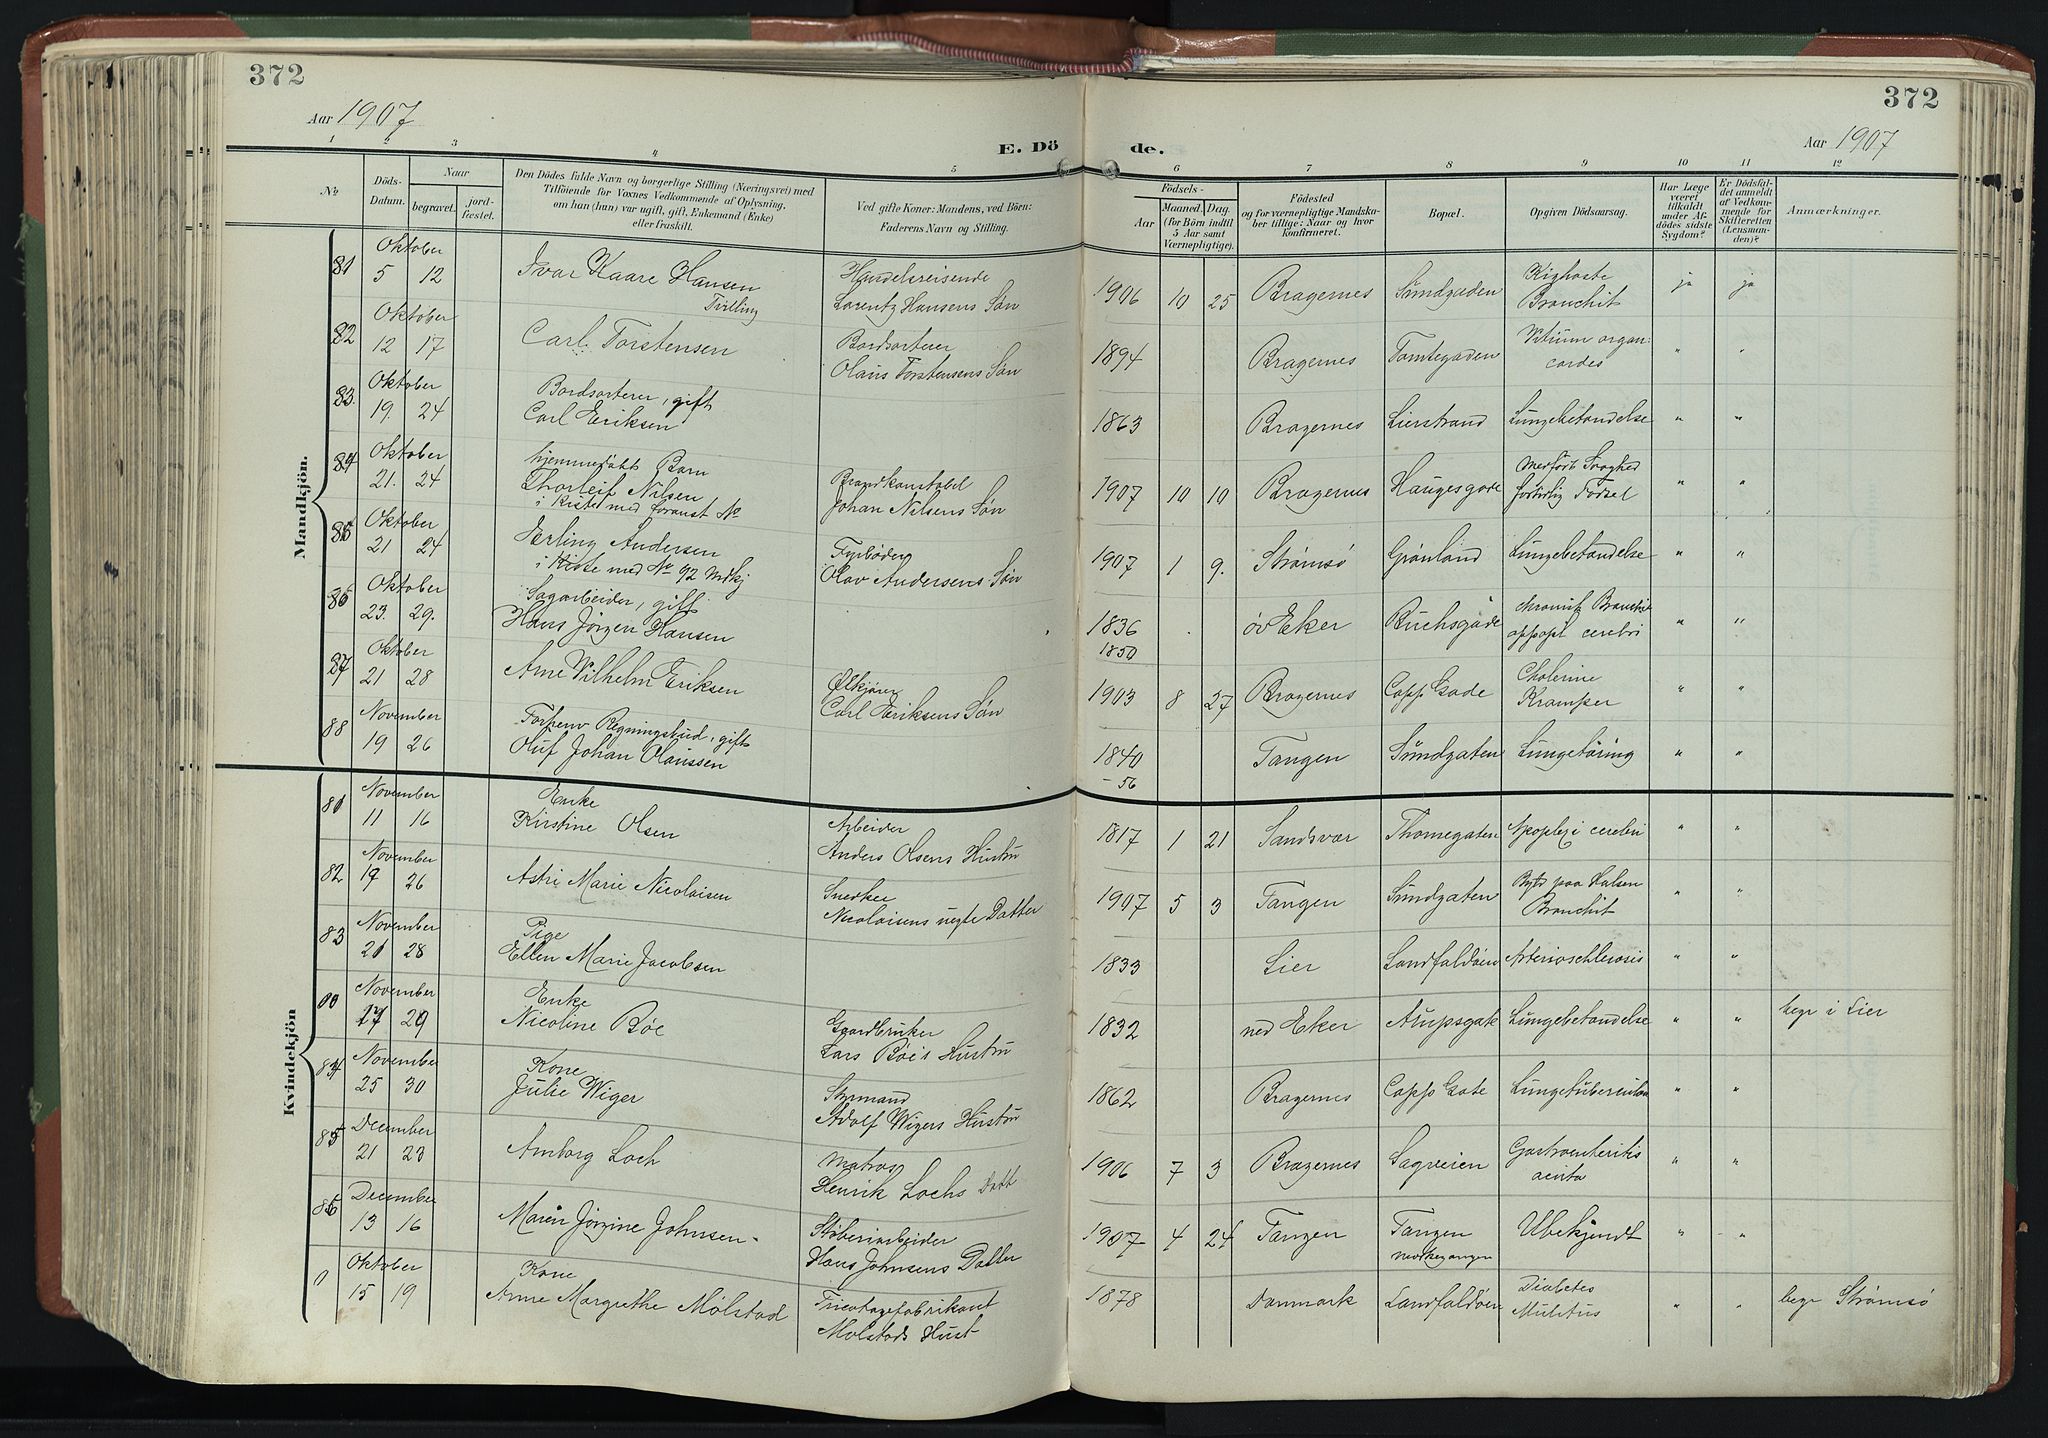 372
372
Aar 1907
Aar 1907
E. Dö
de.
1 2 3 4 5 6 7 8 9 10 11 12
№
Döds-Datum.
Naar
begravet.
jordfæstet.
Den Dödes fulde Navn og borgerlige Stilling (Næringsvei) med
Tilföiende for Voxnes Vedkommende af Oplysning,
om han (hun) var ugift, gift, Enkemand (Enke)
eller fraskilt.
Ved gifte Koner: Mandens, ved Börn:
Faderens Navn og Stilling.
Födsels-
Aar
Maaned. Dag.
(for Börn indtil
5 Aar samt
Værnepligtige).
Födested
og for værnepligtige Mandska-
ber tillige: Naar og hvor
konfirmeret.
Bopæl.
Opgiven Dödsaarsag.
Har Læge
været
tilkaldt
under Af-
dödes sidste
Sygdom?
Er Dödsfal-
det anmeldt
af Vedkom-
mende for
Skifteretten
(Lensman-
den)?
Anmærkninger.
Mandkjön.
81 Oktober
5 12 Ivar Kaare Hansen Handelsreisende 1906 10 25 Bragernes Sündgaden Kighoste ja ja
Tvilling Lorentz Hansens Søn Bronchit
82 Oktober
12 17 Carl Torstensen Bordsorterer 1894 Bragernes Tomtegaden Vitium organ: " "
Olaus Torstensens Søn cordes
83. Oktober Bordsorterer, gift
19. 24 Carl Eriksen 1863 Bragernes Lierstrand Lungebetændelse " "
84 Oktober hjemmedøbt Barn
21. 24 Thorleif Nilsen Brandkonstabel 1907 10 10 Bragernes Haugesgade Medfødt Svaghed " "
i Kiste med foranst № Johan Nilsens Søn fortidlig Fødsel
85 Oktober
21 24 Erling Andersen Fyrbøder 1907 1 9. Strømsø Grønland Lungebetændelse " "
i Kiste med № 92 Mdkj Olav Andersens Søn
86 Oktober Sagarbeider, gift
23. 29. Hans Jørgen Hansen 1836 øv Eker Buchsgade chronisk Bronchit " "
1850 appopl cerebri
87 Oktober
21 28 Arne Vilhelm Eriksen Ølkjører 1903 8 27 Bragernes Capp Gade Cholerine " "
Carl Eriksens Søn Kramper
88 November Forhenv Regningsbud, gift
19 26 Oluf Johan Olaussen 1840 Tangen Sündgaten Lungetæring " "
- 56
Kvindekjön
81 November Enke
11 16 Kirstine Olsen Arbeider 1817 1 21 Sandsvær Thomegaten Apoplexi cerebri " "
Anders Olsens Hustru
82 November
19 26 Astri Marie Nicolaisen Snedker 1907 5 3 Tangen Sündgaten Byld paa Halsen " "
Nicolaisens uegte Datter Bronchit
83 November Pige
21 28 Ellen Marie Jacobsen 1833 Lier Landfaldøen Arterioschlerosis " "
00 November Enke
29 Nicoline Bøe Gaardbruker 1832 ned Eker Arupsgate Lungebetændelse " " begr i Lier
Lars Bøe's Hustru
84 November Kone
25 30 Julie Wiger Styrmand 1862 Bragernes Capp Gate Lungetuberculose " "
Adolf Wigers Hustru
85 December
21 23 Amborg Loch Matros 1906 7 3 Bragernes Sagveien Gastroenteritis " "
Henrik Lochs Datt acuta
86 December
13 16 Maren Jørgine Johnsen - Støberiarbeider 1907 4 24 Tangen Tangen Ubekjendt " "
Hans Johnsens Datter
0 Oktober Kone
15 19 Anne Margrethe Mølstad Tricotagefabrikant 1878 Danmark Landfaldøen Diabetes " " begr Strømsø
Mølstads Hust Mulitus